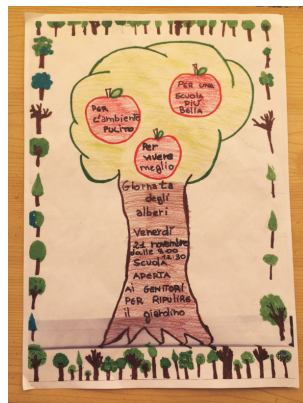 PER
L'ambiente
PULITO
PER UNA
SCUOLA
PIÙ
BELLA
Per
vivere
meglio
Giornata
degli
alberi
Venerdì
21 novembre
dalle 9:00
12:30
SCUOLA
APERTA
Ai GENITORI
PER RIPULIRE
il giardino